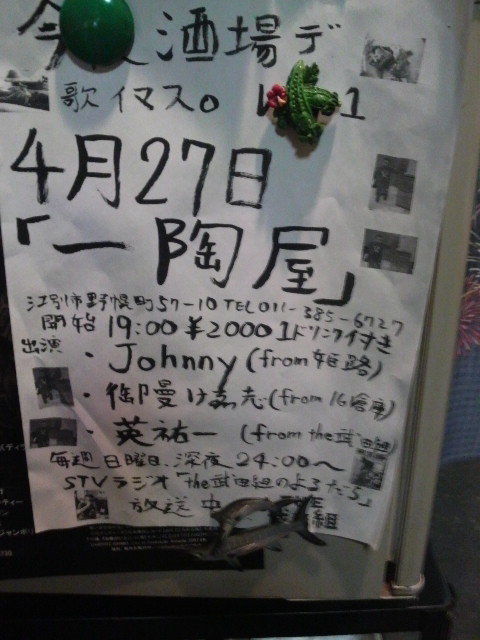 今 酒場デ
歌イマス。 1
4月27日
「一陶屋」
江別市野幌町57-10 TEL011-385-6727
開始 19:00 ¥2000 1ドリンク付き
出演
・Johnny (from 姫路)
・御曼け嘉志 (from 16倉庫)
・英祐一 (from the武田組)
毎週日曜日、深夜24:00〜
STVラジオ「the武田組のよるたち」
放送中